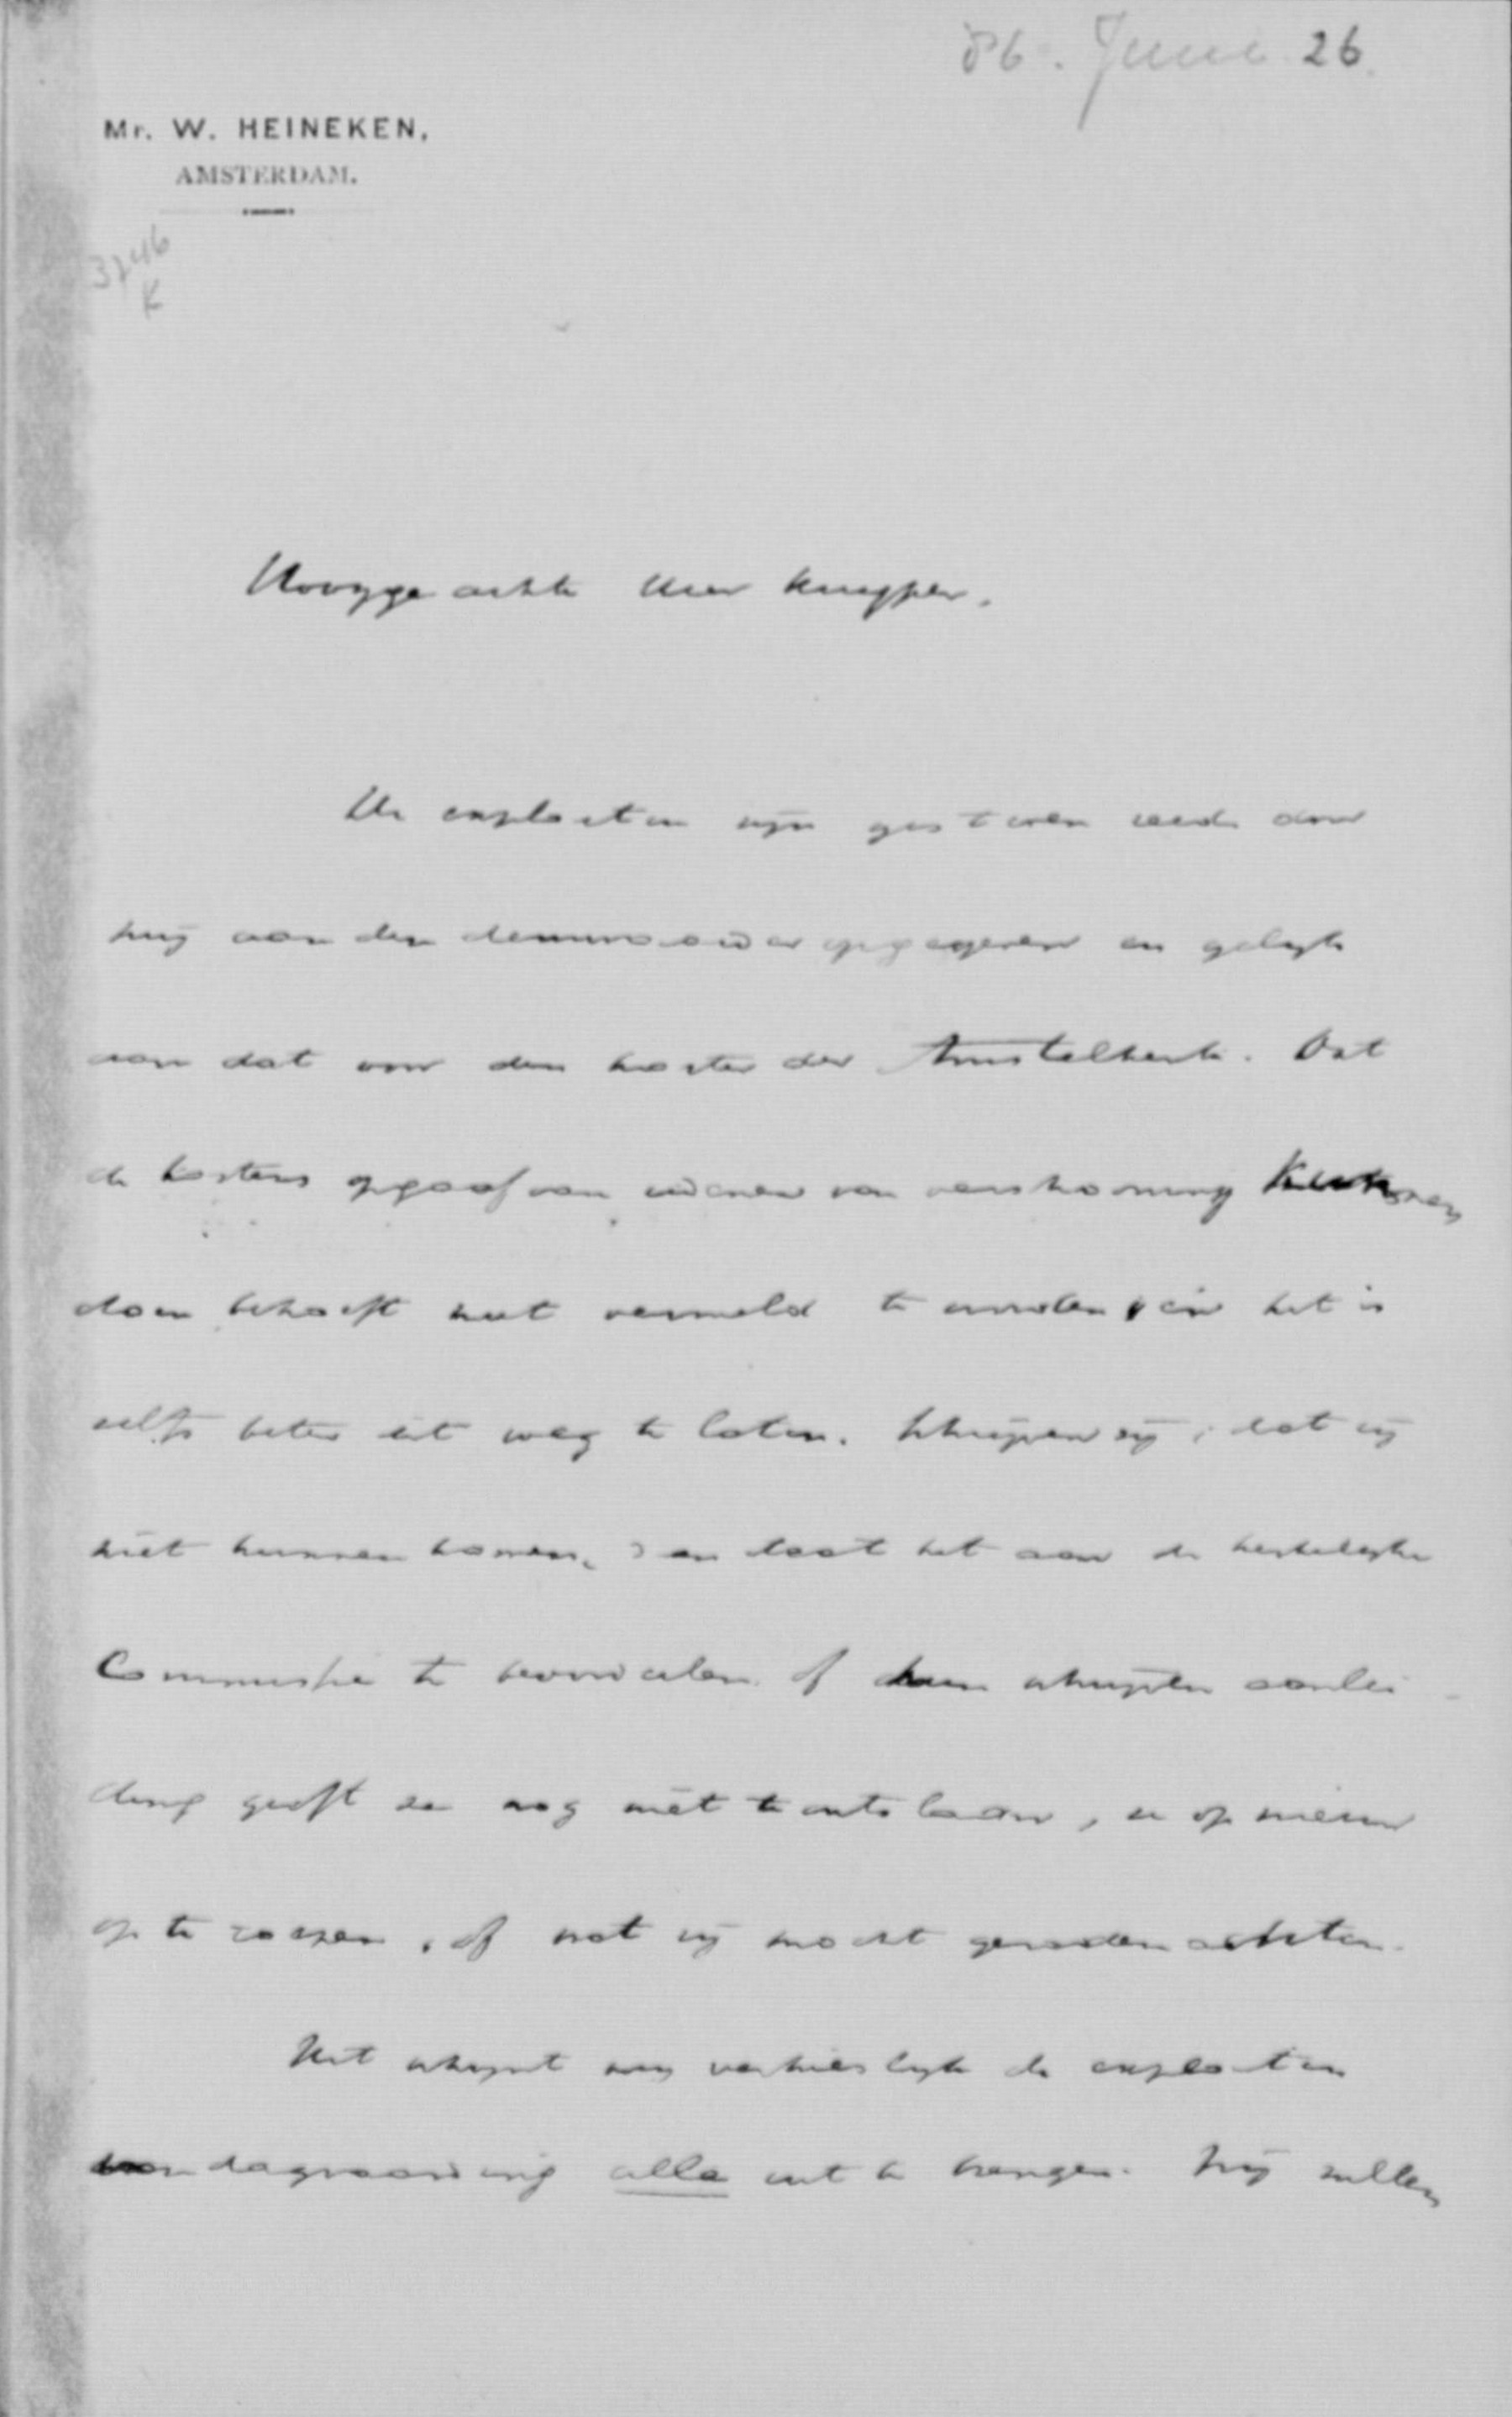 86. Juni 26.
Mr. W. HEINEKEN,
AMSTERDAM.
3746
K
Hooggeachte Heer Kuyper.
De exploiten zijn gisteren reeds door
mij aan den deurwaarder opgegeven en gelijk
aan dat voor den koster der Amstelkerk. Dat
de kosters opgaaf van redenen van verschooning kunnen
doen behoeft niet vermeld te worden en het is
zelfs beter dit weg te laten. Schrijven zij, dat zij
niet kunnen komen, dan laat het aan de kerkelijke
Commissie te beoordelen of hun schrijven aanlei-
ding geeft ze nog niet te ontslaan, ze op nieuw
op te roepen, of wat zij mocht geraden achten.
Het schijnt mij verkieslijk de exploiten
van dagvaarding alle uit te brengen. Mij zullen